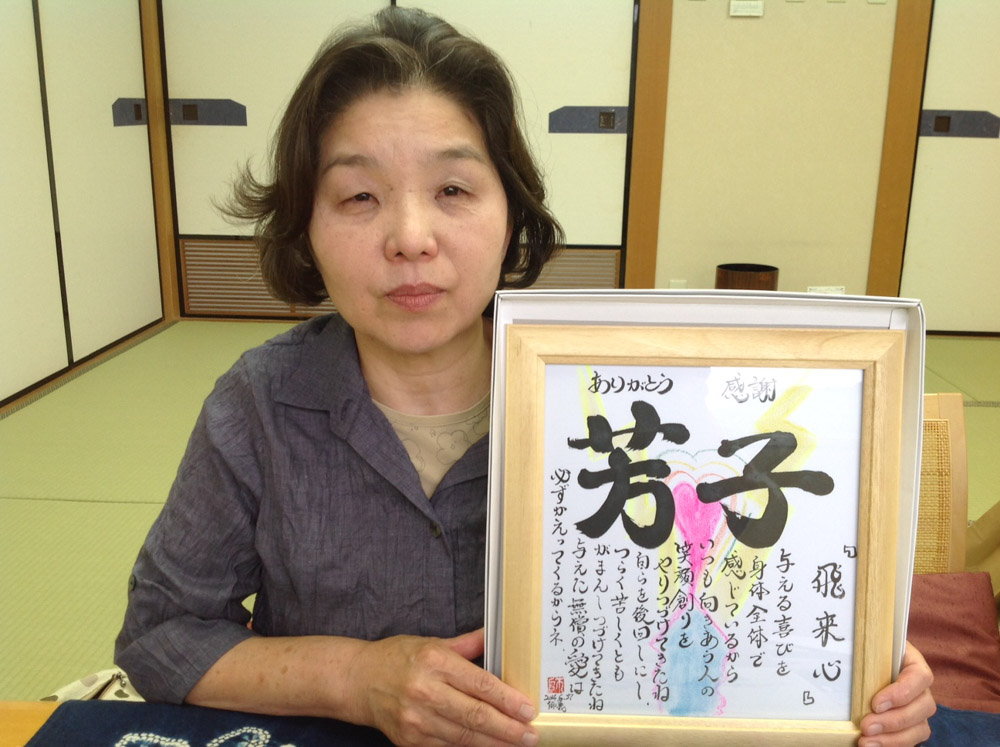 ありがとう 感謝
芳子
『飛来心』
与える喜びを
身体全体で
感じているから
いつも向きあう人の
笑顔創りを
やりつづけてきたね
自らを後回しにし、
つらく苦しくとも
がまんしつづけてきたね
与えた無償の愛は
必ずかえってくるからネ